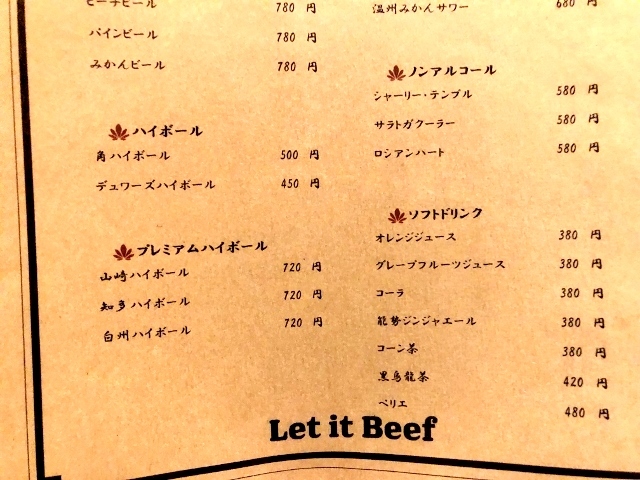 ピーチビール 780 円
パインビール 780 円
みかんビール 780 円
ハイボール
角ハイボール 500 円
デュワーズハイボール 450 円
プレミアムハイボール
山崎ハイボール 720 円
知多ハイボール 720 円
白州ハイボール 720 円
温州みかんサワー 680 円
ノンアルコール
シャーリー・テンプル 580 円
サラトガクーラー 580 円
ロシアンハート 580 円
ソフトドリンク
オレンジジュース 380 円
グレープフルーツジュース 380 円
コーラ 380 円
能勢ジンジャエール 380 円
コーン茶 380 円
黒烏龍茶 420 円
ペリエ 480 円
Let it Beef